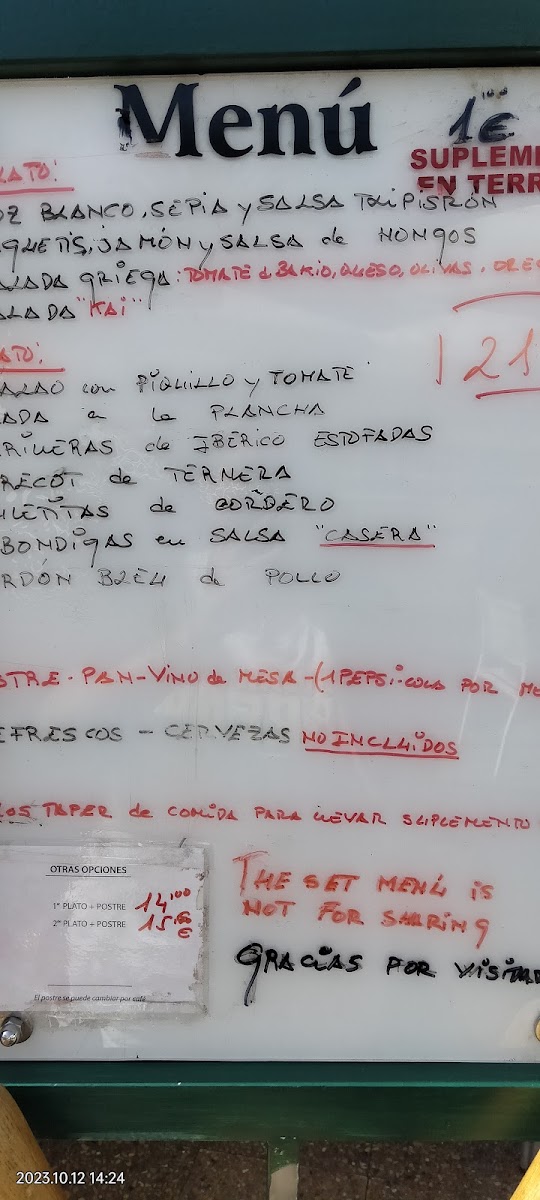 Menú
1'00 €
SUPLEME
EN TERR
LATO:
OZ BLANCO, SEPIA y SALSA
AGUETIS, JAMÓN y SALSA de HONGOS
ALADA GRIEGA: TOMATE d BARIO, QUESO, OLIVAS, OREG
ALADA "KAI"
ATO:
ALAO con PIQUILLO y TOMATE
ADA a la PLANCHA
RILLERAS de IBERICO ESTOFADAS
RECOT de TERNERA
ULETITAS de CORDERO
BONDIGAS en SALSA "CASERA"
RDÓN BLEU de POLLO
STRE - PAN - VINO de MESA - (1 PEPSI-COLA POR ME
EFRESCOS - CERVEZAS NO INCLUIDOS
LOS TAPER de COMIDA PARA LLEVAR SUPLEMENTO
OTRAS OPCIONES
1er PLATO + POSTRE 14'00
2º PLATO + POSTRE 15'50 €
El postre se puede cambiar por café
THE SET MENÚ is
NOT FOR SHARING
GRACIAS POR VISITAR
2023.10.12 14:24